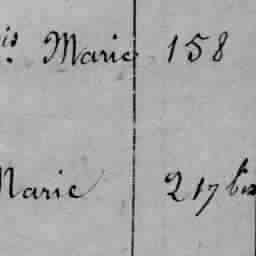 is. Marie 158
Marie 217 bis